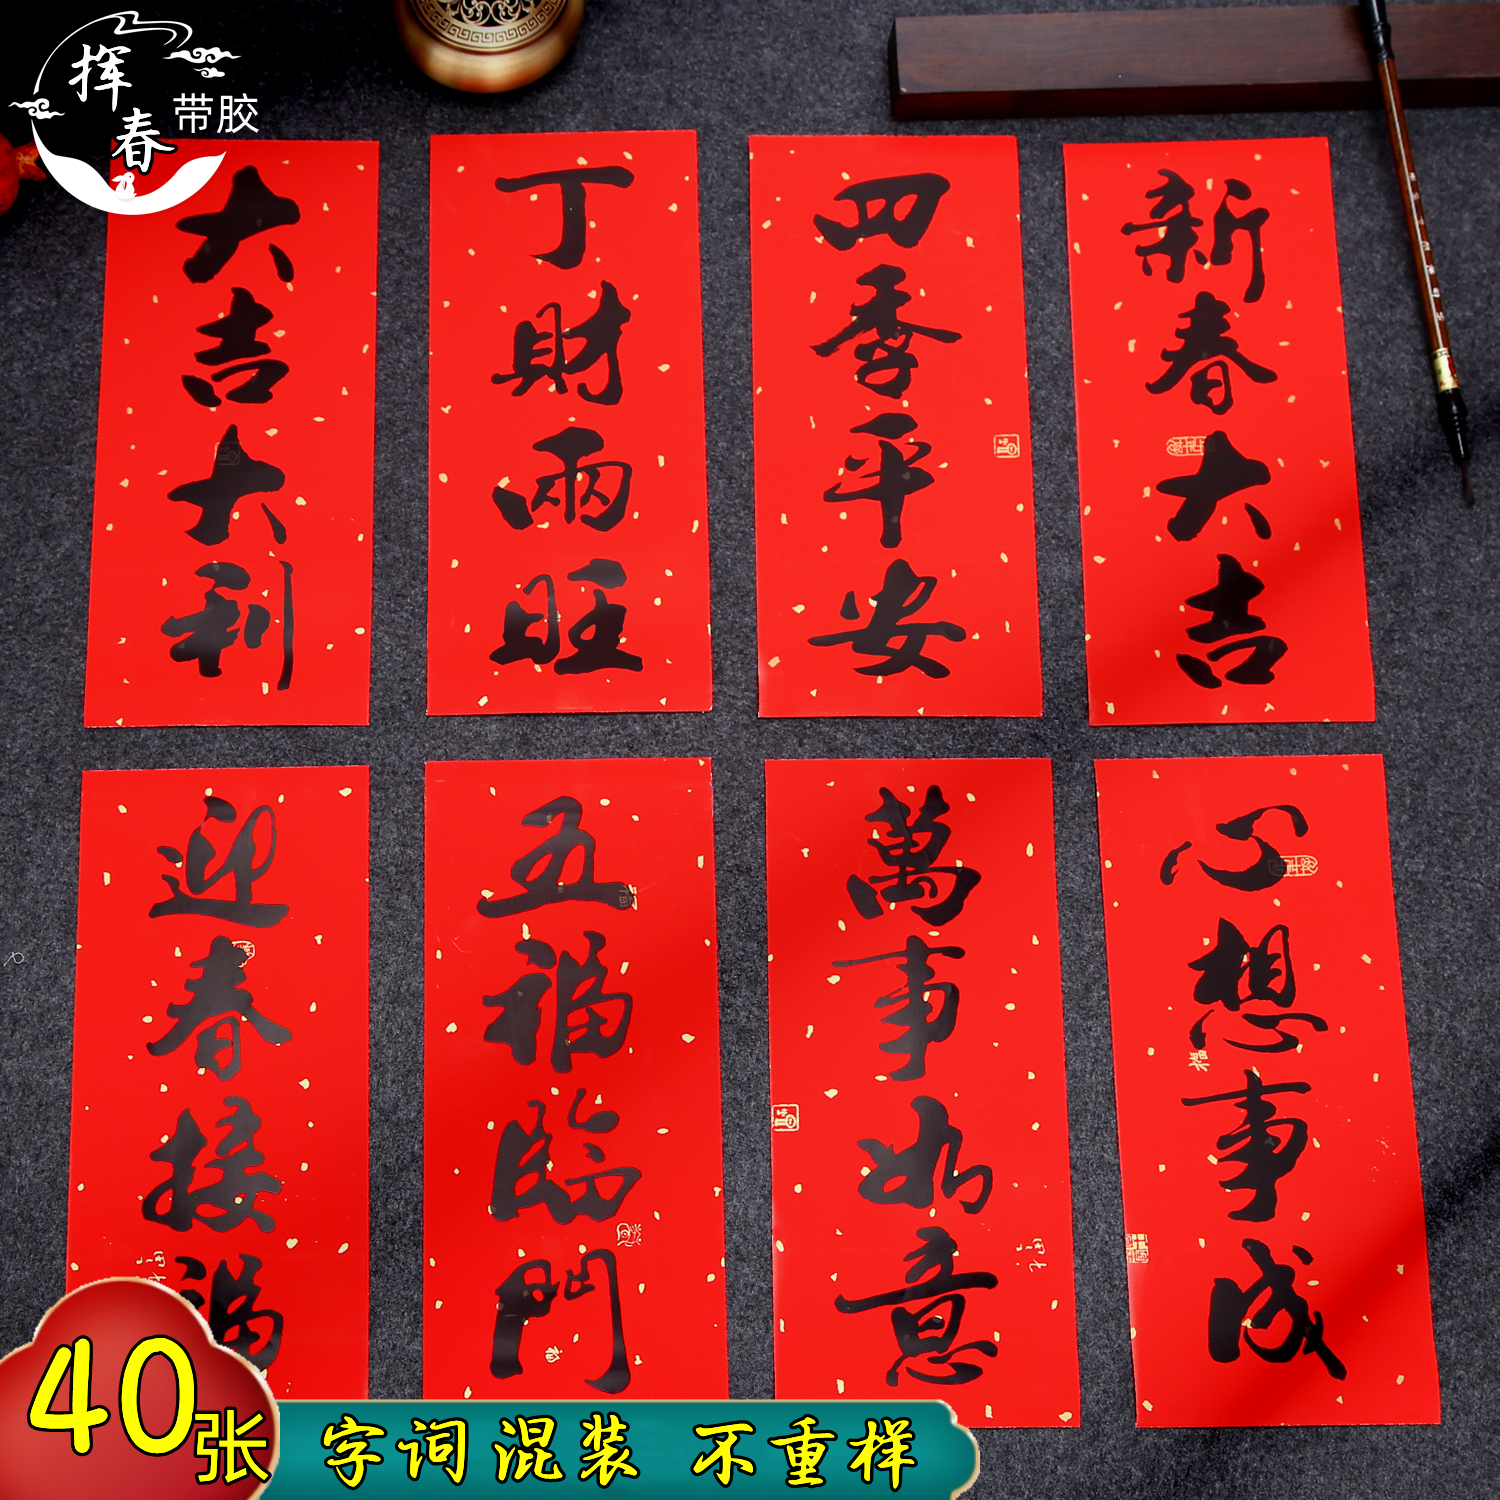 挥春
带胶
大吉大利
丁財兩旺
四季平安
新春大吉
迎春接福
五福臨門
萬事如意
心想事成
40张
字词混装 不重样